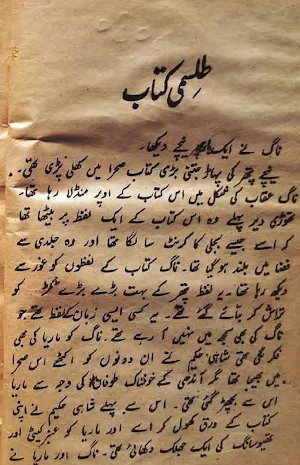 طلسمی کتاب
ناگ نے ایک بار پھر نیچے دیکھا۔
نیچے پتھر کی پہاڑ جتنی بڑی کتاب صحرا میں کھلی پڑی تھی۔
ناگ عقاب کی شکل میں اس کتاب کے اوپر منڈلا رہا تھا۔
تھوڑی دیر پہلے وہ اس کتاب کے ایک لفظ پر بیٹھا تھا
کہ اسے جیسے بجلی کا کرنٹ سا لگا تھا اور وہ جلدی سے
فضا میں بلند ہو گیا تھا۔ ناگ کتاب کے لفظوں کو غور سے
دیکھ رہا تھا۔ یہ لفظ پتھر کے بہت بڑے بڑے ٹکڑوں کو
تراش کر بنائے گئے تھے۔ یہ کسی ایسی زبان کے لفظ تھے جو
ناگ کی بھی سمجھ میں نہیں آ رہے تھے۔ ناگ کو ماریا کی بھی
فکر لگی تھی شاہی حکیم نے ان دونوں کو اکٹھے اس صحرا
میں بھیجا تھا مگر آندھی کے خوفناک طوفان کی وجہ سے ماریا
اس سے بچھڑ گئی تھی۔ اس سے پہلے شاہی حکیم نے اپنی
کتاب کے ورق کھول کر اسے اور ماریا کو عنبر کیٹی اور
تھیوسانگ کی ایک جھلک دکھائی تھی۔ ناگ اور ماریا نے